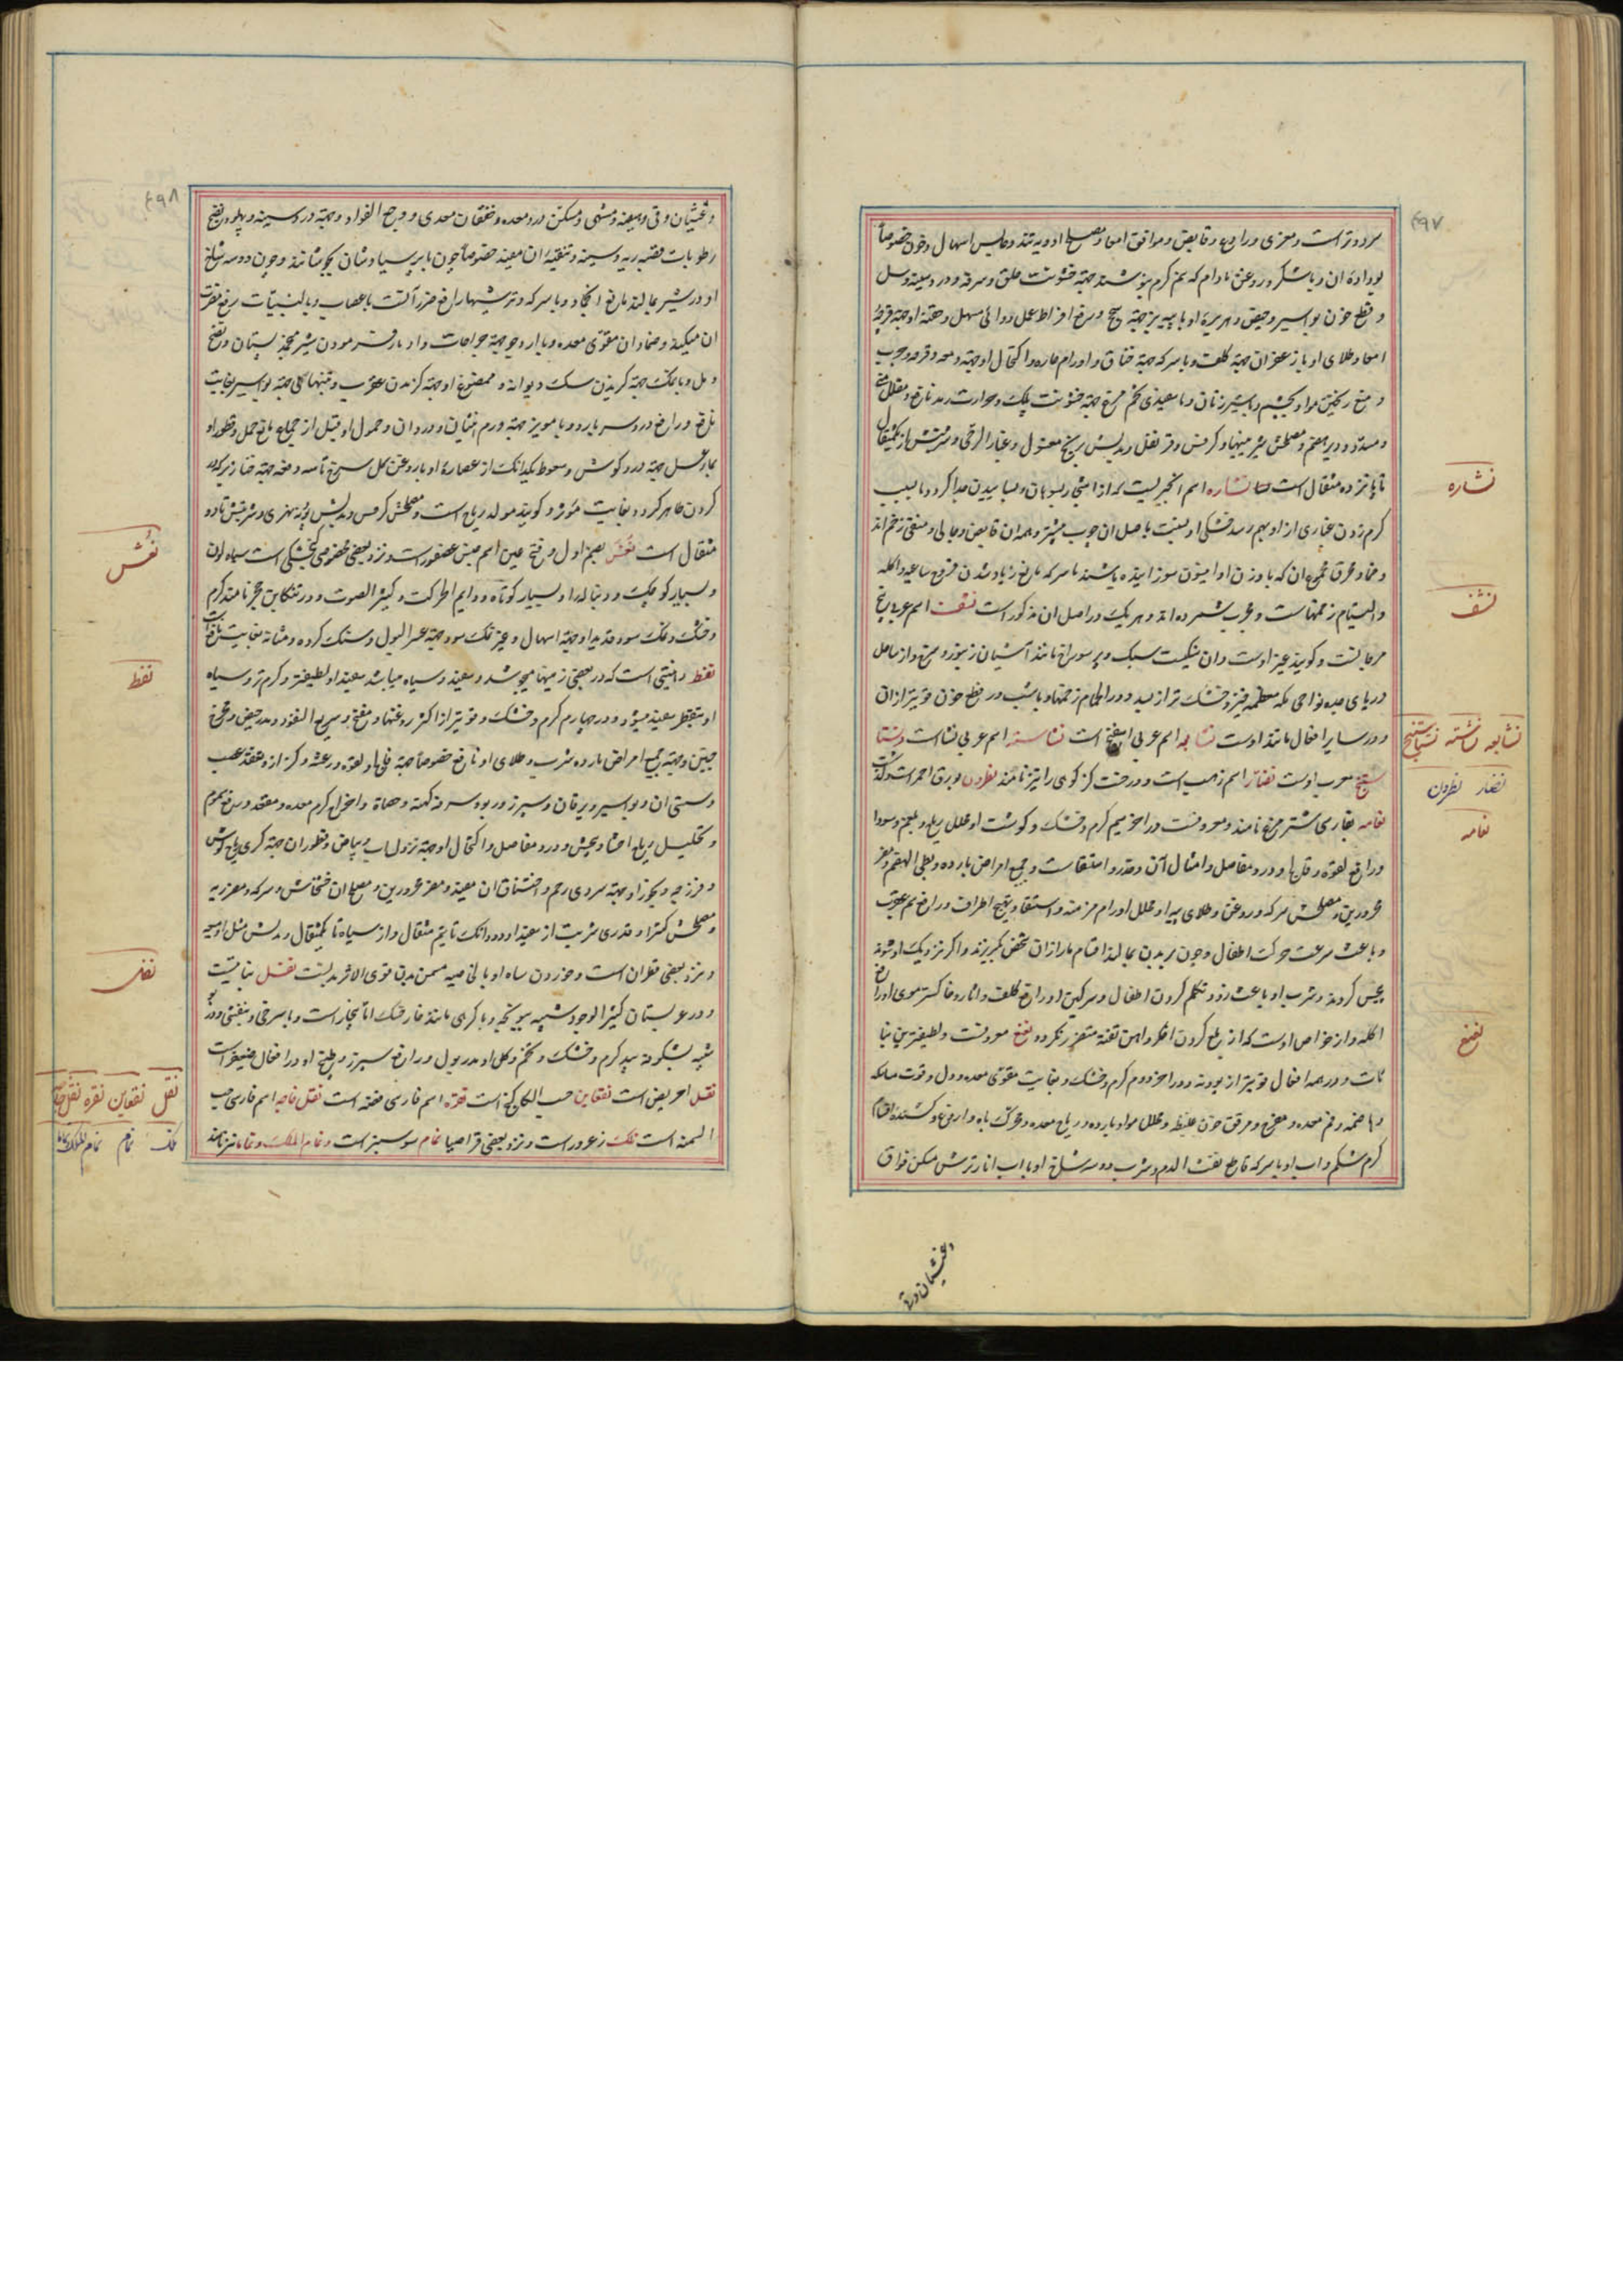 ۴۹۷
سرد و تر است و مغری و رادع و قابض و موافق امعا و مصلح ادویه تند و حابس اسهال و خون خصوصاً
بوداده ان و با شکر و روغن بادام که نیم گرم بنوشند جهة خشونت حلق و سرفه و درد سینه و سل
و قطع خون بواسیر و حیض و هریرهٔ او با پیه بز جهة سحج و رفع افراط عمل دوائی مسهل و حقنهٔ او جهة قرحهٔ
امعا و طلای او با زعفران جهة کلف و با سرکه جهة خناق و اورام حاره و اکتحال او جهة دمعه و قرحه و جرب
و منع ریختن مواد بچشم و با شیر زنان و با سفیدی تخم مرغ جهة خشونت پلک و حرارت رمد نافع و مقلل منی
و مسدد و دیر هضم و مصلحش شیرینیها و کرفس و قرنفل و بدلش برنج مغسول و غبار الرحی و شربتش از یکمثقال
تا پانزده مثقال است نشاره اسم انچیزیست که از اشجار بسوهان و بسابیدن جدا گردد و بسبب
کرم زدن غباری از او بهم رسد خشکی او بنسبت باصل ان چوب بیشتر و همه ان قابض و جالی و منقی زخم اند
و ضماد محرق مجموع ان که با وزن او انیسون سوزانیده باشند با سرکه مانع زیاد شدن قروح ساعیه و اکله
و التیام زخمهاست و مجرب شمرده اند و هریک در اصل ان مذکور است نشف اسم عربی یخ
مرجانست و گویند غیر اوست و ان سنگیست سبک و پر سوراخ مانند آشیان زنبور و سرخ و از ساحل
دریای جده نواحی مکه معظمه خیزد و خشک تر از بسد و در الحام زخمها و با شب در قطع خون قویتر از ان
و در سایر افعال مانند اوست نشابه اسم عربی اسفنج است نشاسته اسم عربی نشاست و نشتا
ستج معرب اوست نضار اسم ذهب است و درخت گز کوهی را نیز نامند نطرون بورق احمر است و گذشت
نعامه بفارسی شتر مرغ نامند و معروفست در اخر سیم گرم و خشک و گوشت او محلل ریاح و بلغم و سودا
و رافع لقوه و فالج و درد مفاصل و امثال آن و خدر و استسقا و جمیع امراض بارده و بطی الهضم و مضر
محرورین و مصلحش سرکه و روغن و طلای پیه او محلل اورام مزمنه و استسقا و تهیج اطراف و رافع سم عقرب
و باعث سرعت حرکت اطفال و چون بر بدن بمالند اقسام مار از ان شخص بگریزند و اگر نزدیک او شوند
بیحس گردند و شرب او باعث زود تکلم کردن اطفال و سرگین او رافع کلف و اثار و خاکستر موی او رافع
اکله و از خواص اوست که از بلع کردن اخگر و اهن تفته متضرر نگردد نعنع معروفست و لطیفترین نبا
تات و در همه افعال قویتر از پودنه و در اخر دوم گرم و خشک و بغایت مقوی معده و دل و قوت ماسکه
و هاضمه و فم معده و مفرح و مرقق خون غلیظ و محلل مواد بارده و ریاح معده و محرک باه و ارضاع و کشنده اقسام
کرم شکم و اب او با سرکه قاطع نفث الدم و شرب دو سه شاخ او با اب انار ترش مسکن فواق
و غثیان و قی
نشاره
نشف
نشابه نشاسته نشتاستج
نضار نطرون
نعامه
نعنع
۴۹۸
و غثیان و قی و هیضه و مشهی و مسکن درد معده و خفقان معدی و وجع الفواد و جهة درد سینه و پهلو و نضج
رطوبات قصبه ریه و سینه و تنقیه ان مفید خصوصاً چون با پرسیاوشان بجوشانند و چون دو سه شاخ
او در شیر بمالند مانع انجماد و با سرکه و ترشیها رافع ضرر آلت باعصاب و با لبنیات رفع مضرت
ان میکند و ضماد ان مقوی معده و با ارد جو جهة جراحات و اد بار فرمودن شیر منجمد پستان و نضج
دمل و با نمک جهة گزیدن سگ دیوانه و ممضوغ او جهة گزیدن عقرب و تنهائی جهة بواسیر بغایت
نافع و رافع درد سر بارد و با مویز جهة ورم انثیان و دردان و حمول او قبل از جماع مانع حمل و قطور او
بماء عسل جهة درد گوش و سعوط یکدانک از عصارهٔ او با روغن گل سرخ تا سه دفعه جهة خنازیر که در
گردن ظاهر گردد بغایت مؤثر و گویند مولد ریاح است و مصلحش کرفس و بدلش پودنه نهری و شربتش تا دو
مثقال است نغر بضم اول و فتح غین اسم جنس عصفور است و نزد بعضی مخصوص گنجشکی است سیاه لون
و بسیار کوچک و دنباله دار و بسیار کوتاه و دایم الحرکت و کثیر الصوت و در تنکابن مجز نامند گرم
و خشک و نمک سود و قدید او جهة اسهال و غیر نمک سود جهة عسر البول و سنگ گرده و مثانه بغایت نافع است
نفط دهنیتی است که در بعضی زمینها میجوشد و سفید و سیاه میباشد سفید او لطیفتر و گرم تر و سیاه
او بتقطیر سفید میشود و در چهارم گرم و خشک و قویتر از اکثر روغنها و مفتح و سریع النفوذ و مدر حیض و مخرج
جنین و جهة جمیع امراض بارده شرب و طلای او نافع خصوصاً جهة فالج و لقوه و رعشه و کزاز و عقد عصب
و سستی ان و بواسیر و یرقان و سپرز و ربو و سرفه کهنه و حصاة و اخراج کرم معده و مقعد و رفع سموم
و تحلیل ریاح احشا و پیچش و درد مفاصل و اکتحال او جهة نزول اب و بیاض و قطور ان جهة کری و ریاح گوش
و فرزجه و بخور او جهة سردی رحم و اختناق ان مفید و مضر محرورین و مصلح ان خشخاش و سرکه و مضر ریه
و مصلحش کتیرا و قدر شربت از سفید او دو دانک تا نیم مثقال و از سیاه تا یکمثقال و بدلش مثل او میعه
و نزد بعضی قطران است
و در عربستان کثیر الوجود شبیه به
شبیه بشکوفه بید گرم و خشک و تخم و گل او مدر بول و رافع سپرز و بیخ او در افعال ضعیفتر است
نقل احریض است نقعاین حب الکاکنج است نقره اسم فارسی فضه است نقل خواجه اسم فارسی حب
السمنه است نلک زعرور است و نزد بعضی قراصیا نمام سوسنبر است و نمام الملک و نمانیز نامند
نغر
نفط
نفل
نقل نقعاین نقره نقل خواجه
نلک نمام نمام الملک